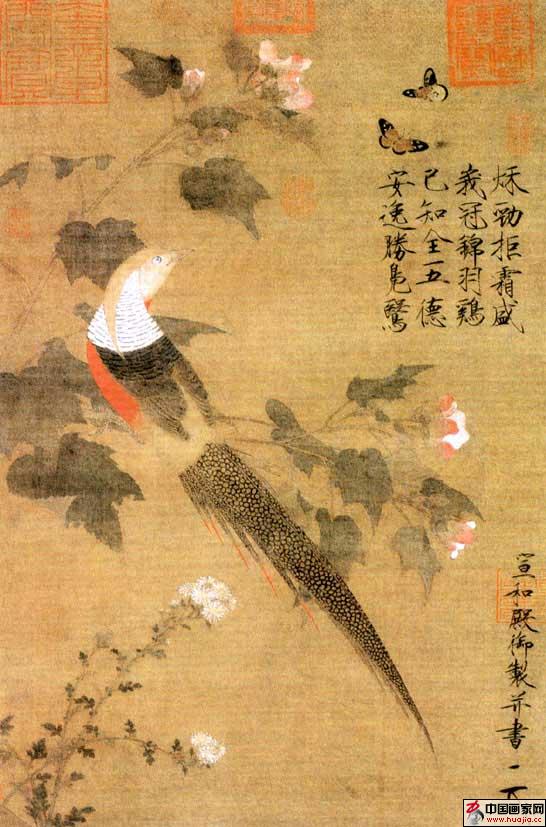 秋勁拒霜盛
峩冠錦羽鷄
已知全五德
安逸勝鳧鷖
宣和殿御製并書
中国画家网
www.huajia.cc